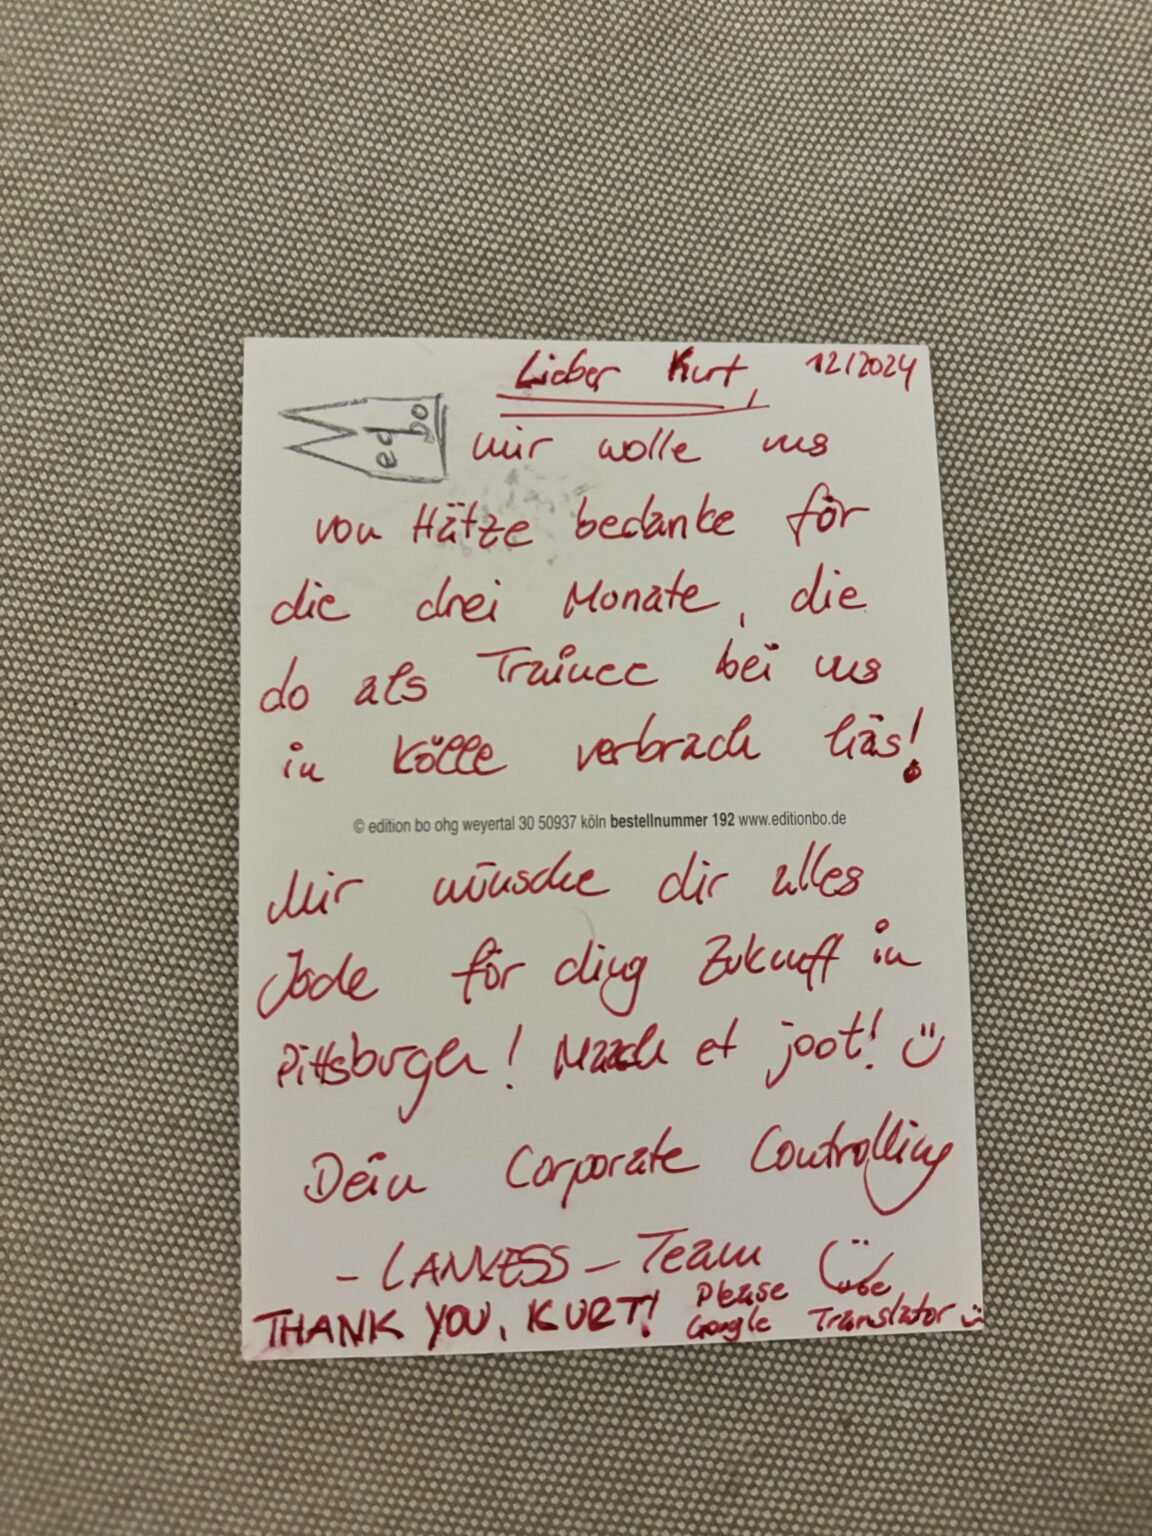 Lieber Kurt, 12/2024
ed bo
mir wolle uns
von Hätze bedanke för
die drei Monate, die
do als Trainee bei uns
in Kölle verbrach häs!
© edition bo ohg weyertal 30 50937 köln bestellnummer 192 www.editionbo.de
Mir wünsche dir alles
Jode för ding Zukunft in
Pittsburgh! Maach et joot! ü
Dein Corporate Controlling
- LANXESS - Team
THANK YOU, KURT! Please use
Google Translator :)